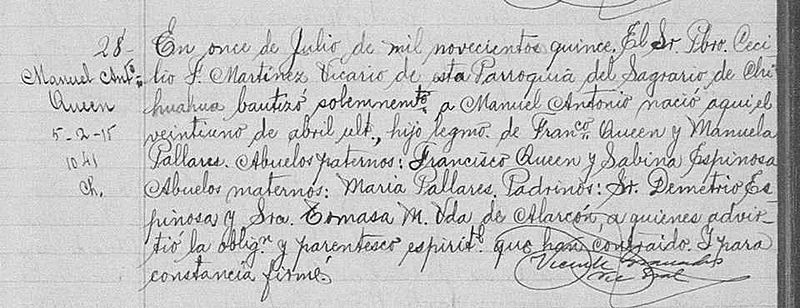 28-
Manuel Anto.
Queen
5-2-15
1041
Ch.
En once de Julio de mil novecientos quince, El Sr. Pbro. Ceci-
lio F. Martinez Vicario de esta Parroquia del Sagrario de Chi-
huahua bautizó solemnemto. a Manuel Antonio nació aqui el
veintiuno de abril ult., hijo legmo. de Franco. Queen y Manuela
Pallares. Abuelos paternos: Francisco Queen y Sabina Espinosa
Abuelos maternos: Maria Pallares, Padrinos: Sr. Demetrio Es-
pinosa y Sra. Tomasa M. Vda de Alarcón, a quienes advir-
tió la oblign. y parentesco espiritl. que han contraido. Y para
constancia firmé.
Vicente Granados